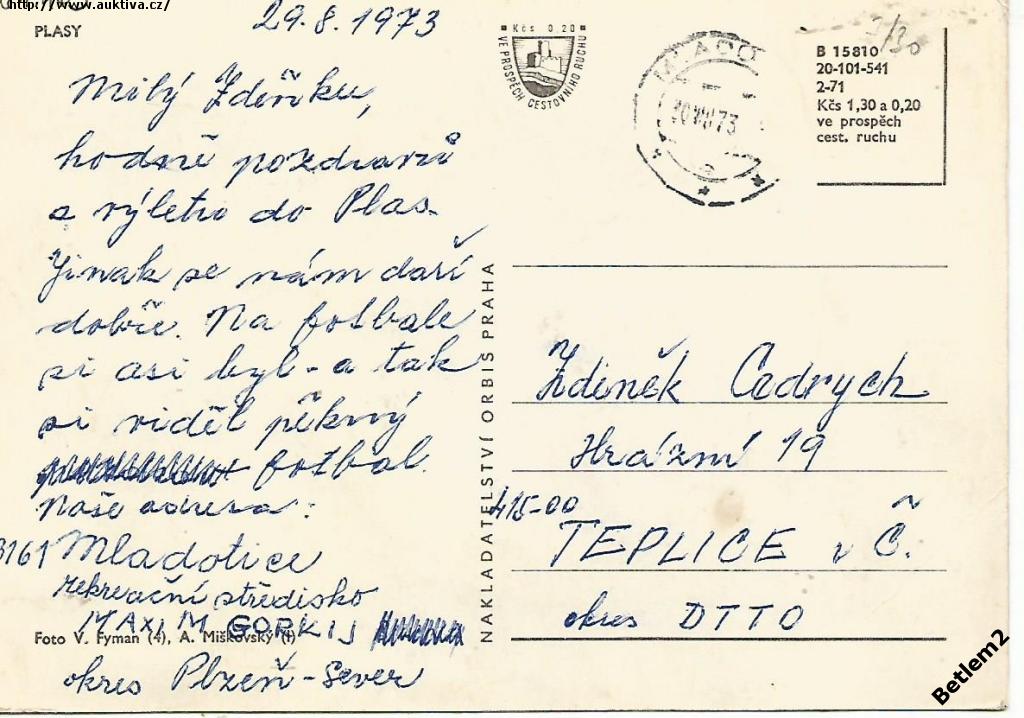 http://www.auktiva.cz/
PLASY
29.8.1973
Milý Zdeňku,
hodně pozdravů
z výletu do Plas.
Jinak se nám daří
dobře. Na fotbale
si asi byl - a tak
si viděl pěkný
fotbal.
Naše adresa:
Mladotice
rekreační středisko
MAXIM GORKIJ
Foto V. Fyman (4), A. Miškovský (1)
okres Plzeň-Sever
NAKLADATELSTVÍ ORBIS PRAHA
Kčs 0,20
VE PROSPĚCH CESTOVNÍHO RUCHU
B 15810
20-101-541
2-71
Kčs 1,30 a 0,20
ve prospěch
cest. ruchu
Zdeněk Cedrych
Hrázní 19
415-00
TEPLICE v Č.
okres DTTO
Betlem2